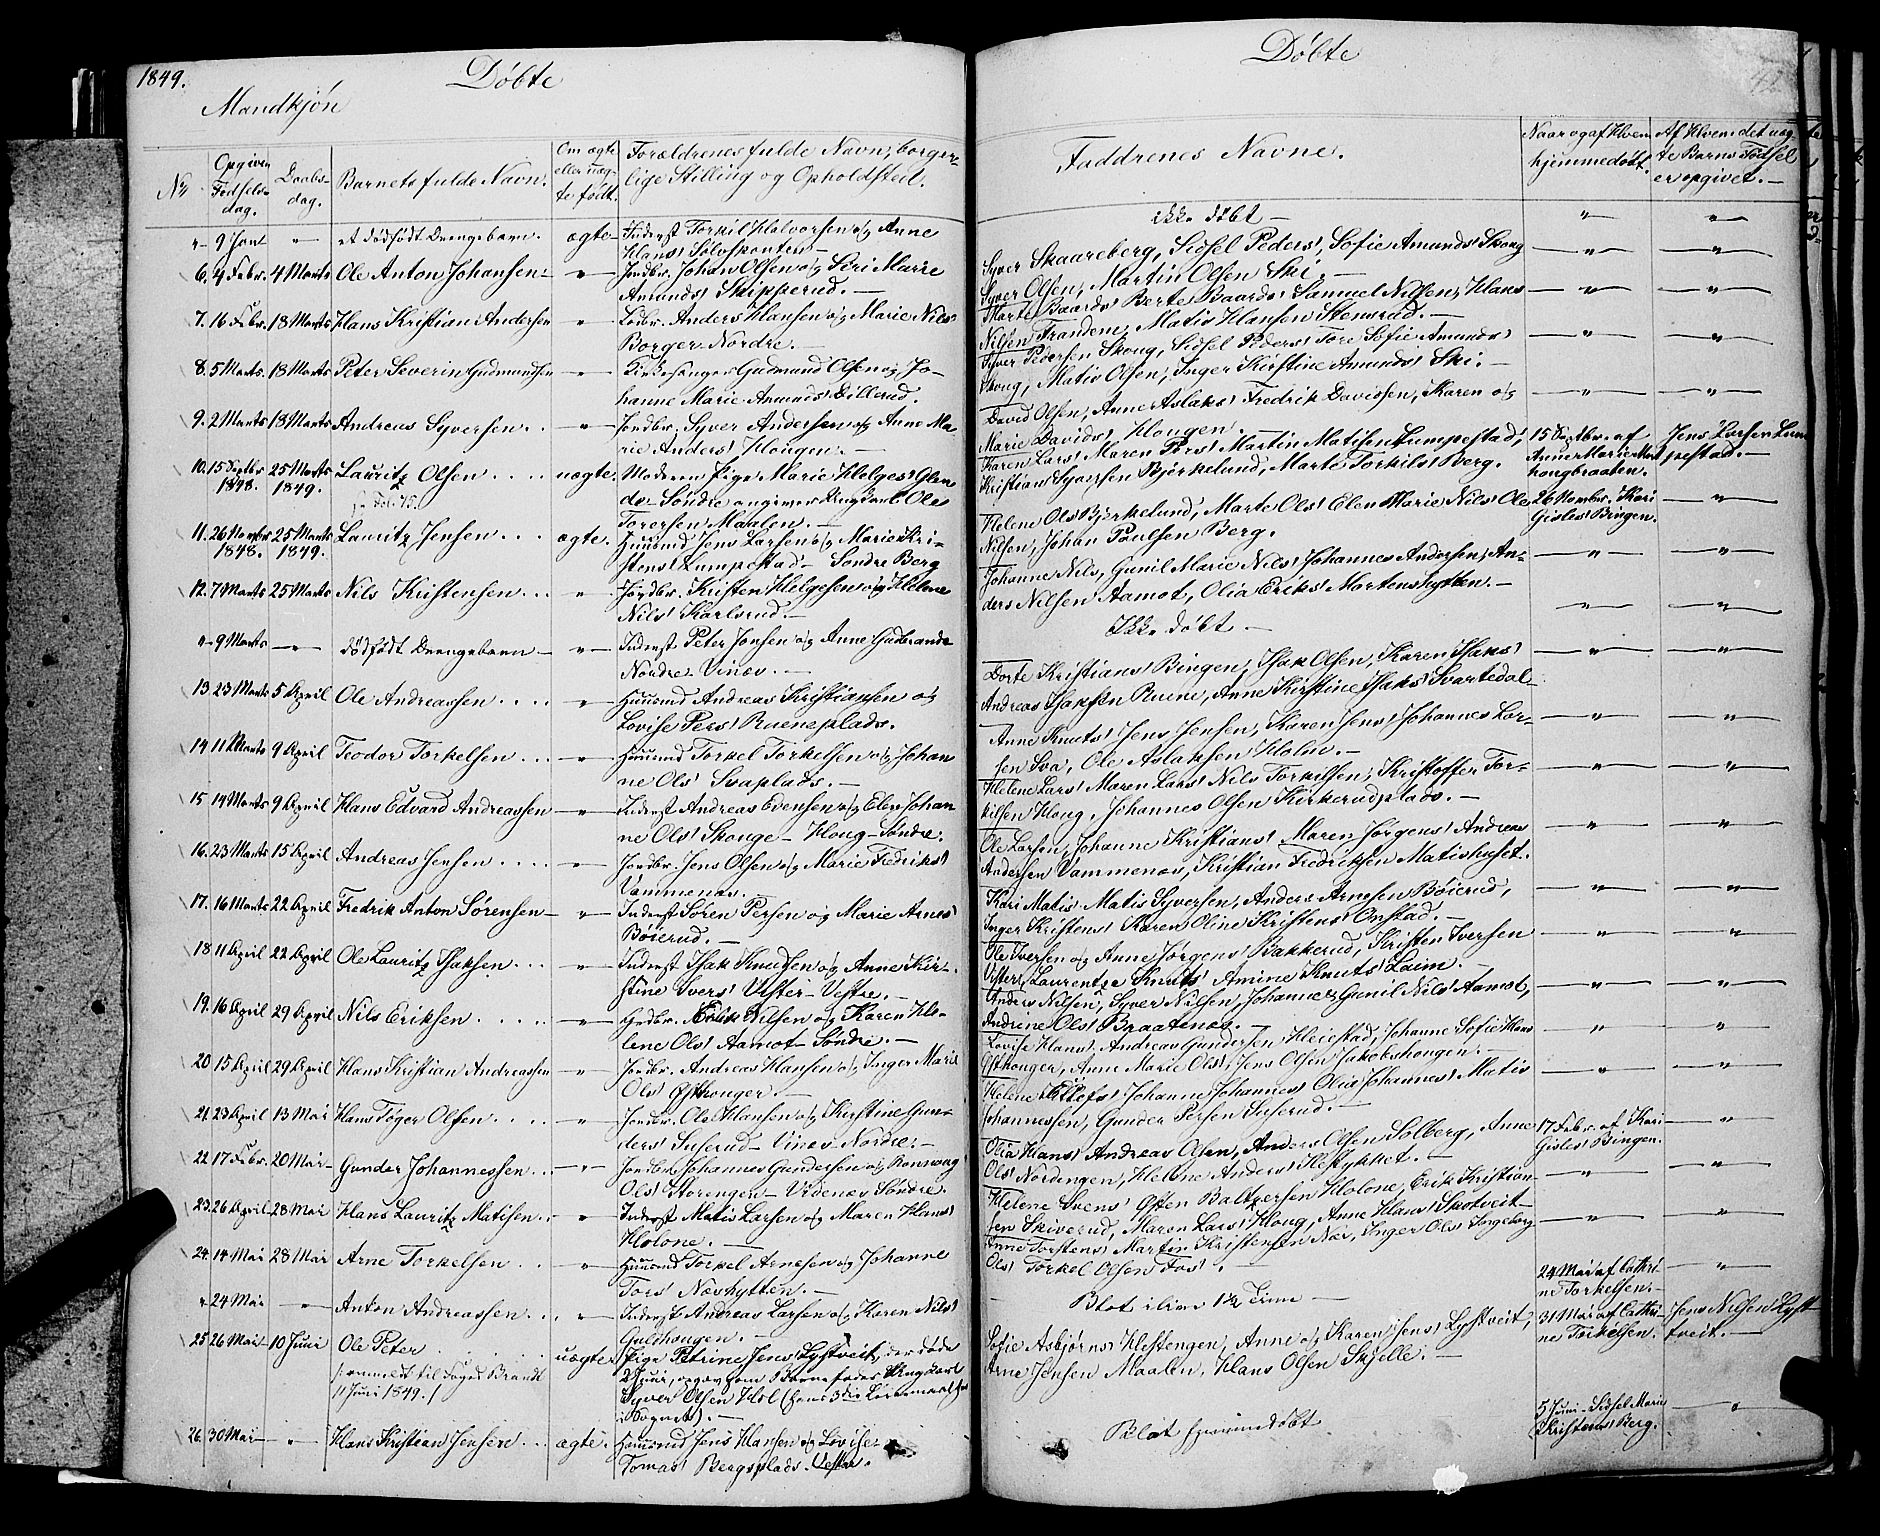 1849.
Døbte
Mandkjøn
No
Opgiven Fødselsdag.
Daabsdag.
Barnets fulde Navn.
Om ægte eller uægte født.
Forældrenes fulde Navn, borgerlige Stilling og Opholdsted.
" 9 Jan " et dødfødt Drengebarn. ægte Inderst Torkil Halvorsen og Anne
Hans'
6. 4 Febr. 4 Marts Ole Anton Johansen " Jordbr. Johan Olsen og Siri Marie
Amunds' Skipperud.
7. 16 Febr. 18 Marts Hans Kristian Andersen " Jordbr. Anders Hansen og Marie Nils'
Borger Nordre.
8. 5 Marts. 18 Marts Peter Severin Gudmundsen " Kirkesanger Gudmund Olsen og Jo-
hanne Marie Amunds' Lillerud.
9. 2 Marts 18 Marts Andreas Syversen " Jordbr. Syver Andersen og Anne Ma-
rie Anders' Hougen.
10. 15 Septbr 25 Marts Lauritz Olsen uægte. Moderen Pige Marie Helges'
1848. 1849. Søndre angiver Ungkarl Ole
Torersen Maalen.
11. 26 Novembr 25 Marts Lauritz Jensen ægte. Huusmd Jens Larsen og Marie Kri-
1848. 1849. stens' Lumpestad Søndre Berg
12. 7 Marts 25 Marts Nils Kristensen " Jordbr. Kristen Helgesen og Helene
Nils' Karlsrud.
" 9 Marts " dødfødt Drengebarn " Inderst Peter Jensen og Anne Gudbrands'
Nordre Vinæs.
13 23 Marts 5 April Ole Andreassen " Huusmd Andreas Kristiansen og
Lovise Pers' Rueneplads.
14 11 Marts 9 April Teodor Torkelsen " Huusmd Torkel Torkelsen og Johan
ne Ols' Svaplads.
15 14 Marts 9 April Hans Edvard Andreassen " Inderst Andreas Evensen og Elen Johan
ne Ols' Skouge Houg Søndre.
16. 23 Marts 15 April Andreas Jensen " Jordbr. Jens Olsen og Marie Fedriks'
Vammenæs.
17. 16 Marts 22 April Fredrik Anton Sørensen " Inderst Søren Persen og Marie Arnes'
Bøierud.
18 11 April 22 April Ole Lauritz Isaksen " Inderst Isak Knudsen og Anne Kir-
stine Ivers' Vister Vestre.
19. 16 April 29 April Nils Eriksen " Grdbr. Erik Nilsen og Karen He-
lene Ols' Aamot Søndre.
20 15 April 29 April Hans Kristian Andreassen " Jordbr. Andreas Hansen og Inger Marie
Ols' Østhouger.
21 23 April 13 Mai Hans Tøger Olsen " Jordbr. Ole Hansen og Kirstine Gun-
ders' Suserud Vinæs Nordre.
22 17 Febr. 20 Mai Gunder Johannessen " Jordbr. Johannes Gundersen og Ronnoug
Ols' Storengen Videnæs Søndre.
23. 26 April 28 Mai Hans Lauritz Matisen " Inderst Matis Larsen og Maren Hans'
Holone.
24. 14 Mai 28 Mai Arne Torkelsen " Huusmd Torkel Arnesen og Johanne
Tors' Næshytten.
" 24 Mai " Anton Andreassen " Inderst Andreas Larsen og Karen Nils'
Guldhougen.
25 26 Mai 10 Juni Ole Peter uægte Pige Petrine Jens' Lystveit, der døde
anmeldt til Foged Brandt 2 Juni, opgav som Barnefader Ungkarl
11 Juni 1849. Syver Olsen Hol (hans 3die Leiermaal
i Sognet).
26. 30 Mai " Hans Kristian Jensen ægte. Huusmd Jens Hansen og Lovise
Tomas' Bergsplads Vestre.
Døbte
Faddrenes Navne.
Naar og af Hvem hjemmedøbt.
Af Hvem det uægte Barns Fødsel er opgivet.
ikke døbt
Syver Skaareberg, Sidsel Peders', Sofie Amunds' Skoug
Syver Olsen, Martin Olsen Ski.
Marte Baards' Berte Baards' Samuel Nilsen, Hans
Nilsen Frandem, Matis Hansen Stensrud.
Syver Pedersen Skoug, Sidsel Peders' Tore Sofie Amunds'
Skoug, Matis Olsen, Inger Kirstine Amunds' Ski.
David Olsen, Anne Aslaks' Fredrik Davidsen, Karen og
Marie Davids' Hougen.
Karen Lars' Maren Pers' Martin Matisen Lumpestad, 15 Septbr. af Jens Larsen Lum
Kristian Syversen Bjørkelund, Marte Torkils' Berg. Anne Marie pestad.
hougbraaten.
Helene Ols' Bjørkelund, Marte Ols' Elen Marie Nils' Ole 26 Novembr. Kari
Nilsen, Johan Paulsen Berg. Gisles' Bingen.
Johanne Nils', Gunil Marie Nils' Johannes Andersen, An-
ders Nilsen Aamot, Olia Eriks' Mortenshytten.
Ikke døbt
Dorte Kristians' Bingen, Isak Olsen, Karen Isaks'
Andreas Isaksen Ruene, Anne Kirstine Isaks' Svartedal
Anne Knuts' Jens Jensen, Karen Jens' Johannes Lar-
sen Sva, Ole Aslaksen Holm.
Helene Lars' Maren Lars' Nils Torkilsen, Kristoffer Tor-
kilsen Houg, Johannes Olsen Kirkerudplads.
Ole Larsen, Johanne Kristians' Maren Jørgens' Andreas
Andersen Vammenæs, Kristian Fredriksen Matishuset.
Kari Matis' Matis Syversen, Anders Arnesen Bøierud,
Inger Kristens' Karen Oline Kristens' Omstad.
Ole Iversen og Anne Jørgens' Bakkerud, Kristen Iversen
Vister, Laurentze Knuts' Amine Knuts' Laim.
Anders Nilsen, Syver Nilsen, Johannes Gunil Nils' Aamot,
Andrine Ols' Braatenæs.
Lovise Hans', Andreas Gundersen Heiestad, Johanne Sofie Hans'
Østhouger, Anne Marie Ols', Jens Olsen Jakobshougen.
Helene Johanne Johannes' Olia Johannes' Matis
Johannessen, Gunder Persen Suserud.
Olia Hans' Andreas Olsen, Anders Olsen Solberg, Anne 17 Febr. af Kari
Ols' Nordengen, Helene Anders' Hestykket. Gisles' Bingen.
Helene Svens' Osten Baltzersen Holone, Erik Kristian-
sen Skiverud, Maren Lars' Houg, Anne Hans' Skotveit
Anne Torstens' Martin Kristensen Næs, Inger Ols' Ingeborg
Ols' Torkel Olsen Fos'.
24 Mai af Cathri
ne Torkelsen.
Blot
Sofie Asbjørns' Hestengen, Anne og Karen Jens' Lystveit, 31 Mai af Cathri Jens Nilsen Lyst
Arne Jensen Maalen, Hans Olsen Skjelle. ne Torkelsen. tveit.
Blot hjemmedøbt 5 Juni Sidsel Marie
Kristens' Berg.